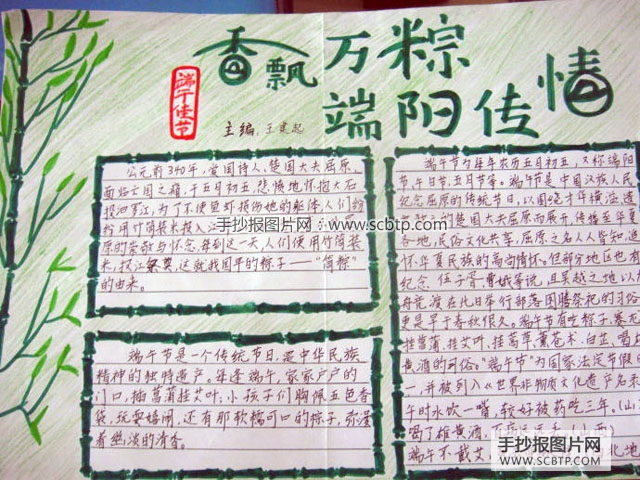 香飘万粽
端阳传情
端午佳节
主编：王建起
公元前340年，爱国诗人、楚国大夫屈原，
面临亡国之痛，于五月初五，悲愤地怀抱大石
投汨罗江，为了不使鱼虾损伤他的躯体，人们纷
纷用竹筒装米投入
原的崇敬与怀念，每到这一天，人们便用竹筒装
米，投江祭奠，这就我国早的粽子——“筒粽”
的由来。
端午节是一个传统节日，是中华民族
精神的独特遗产，每逢端午，家家户户的
门口，插菖蒲挂艾叶；小孩子们胸佩五色香
袋，玩耍嬉闹，还有那软糯可口的粽子，弥漫
着幽淡的清香。
端午节为每年农历五月初五，又称端阳
节，午日节，五月节等。端午节是中国汉族人民
纪念屈原的传统节日，以围绕才华横溢、遗
楚国大夫屈原而展开，传播至华夏
各地，民俗文化共享，屈原之名人人皆知，追
怀华夏民族的高尚情怀。但部分地区也有
纪念 伍子胥，曹娥等说，且吴越之地以
舟竞渡在此日举行部落图腾祭祀的习俗
更是早于春秋很久。端午节有吃粽子，赛龙
挂菖蒲，挂艾叶，挂蒿草，薰苍术，白芷，喝
黄酒的习俗。“端午节”为国家法定节假
一，并被列入《世界非物质文化遗产名录
午时水饮一嘴，较好被药吃三年。（山
喝了雄黄酒，
端午不戴艾，
手抄报图片网·www.scbtp.com
手抄报图片网
WWW.SCBTP.COM